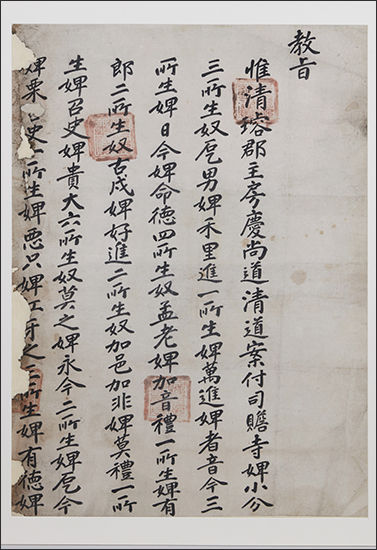 教旨
惟清璿郡主房慶尚道清道案付司贍寺婢小分
三所生奴乭男婢禾里進一所生婢萬進婢者音今三
所生婢日今婢命德四所生奴孟老婢加音禮一所生婢有
郎二所生奴古成婢好進二所生奴加邑加非婢莫禮一所
生婢召史婢貴大六所生奴莫之婢永今二所生婢乭今
婢栗史所生婢悪只婢江牙之二所生婢有德婢